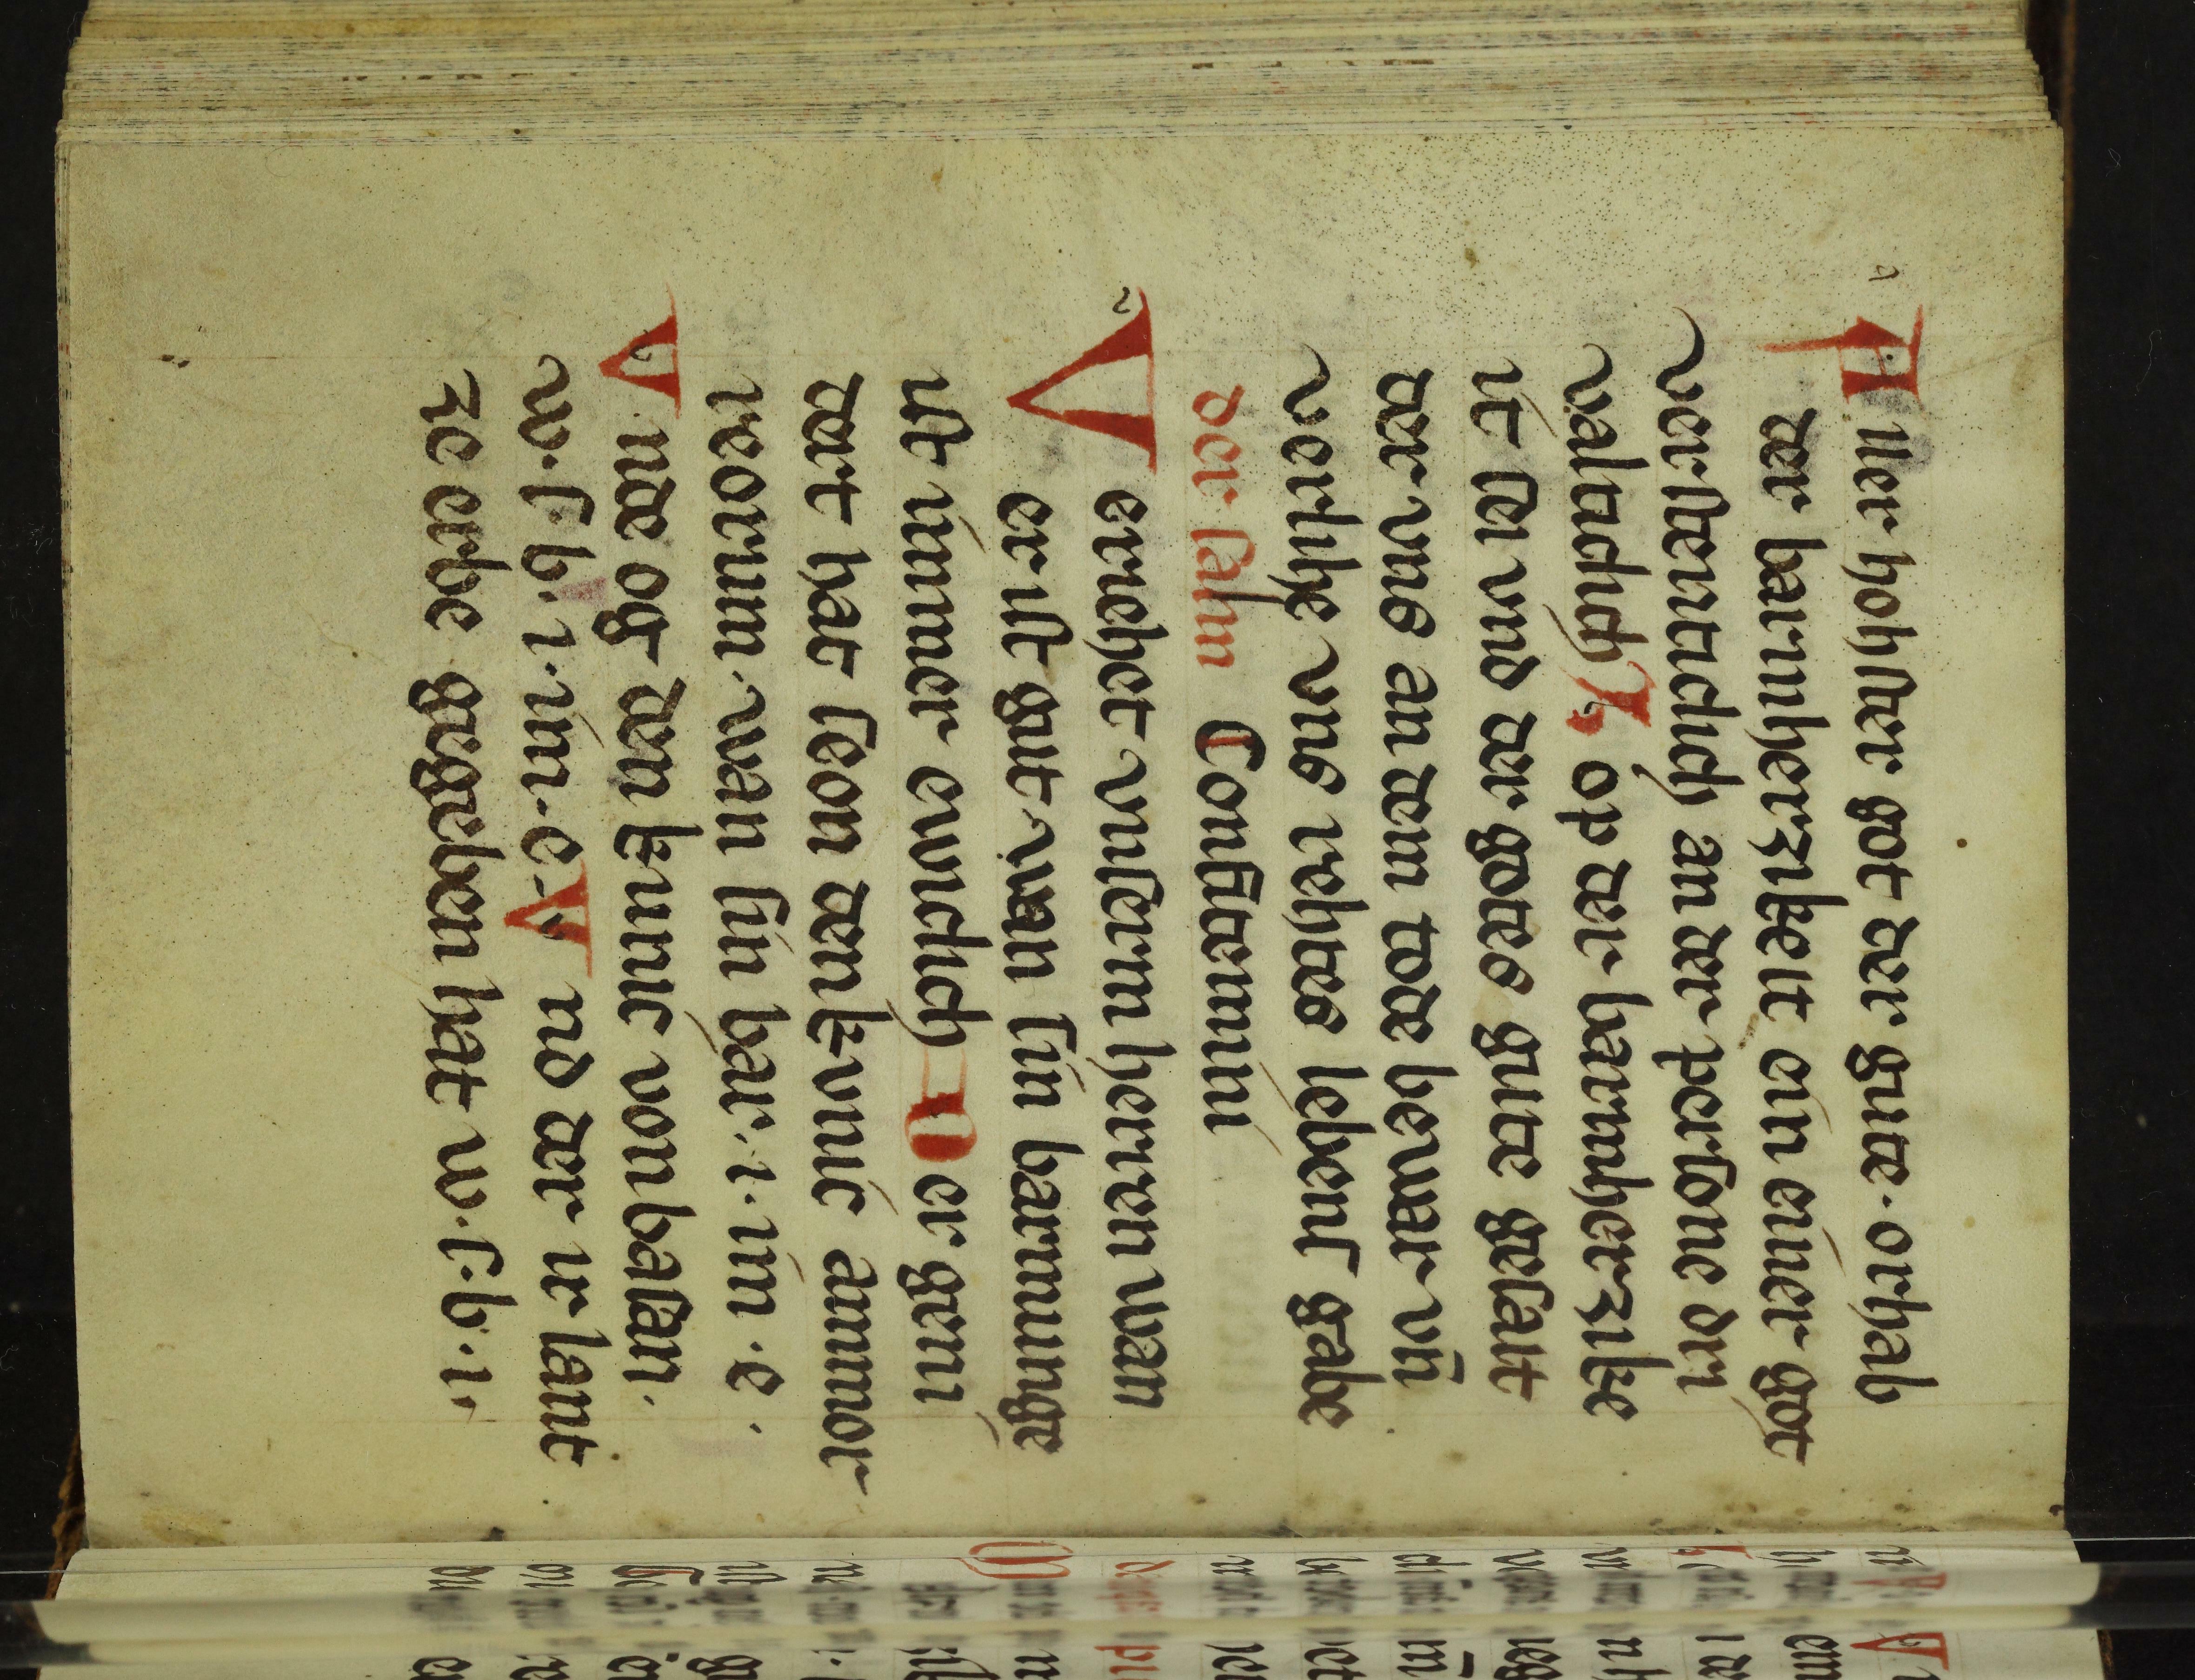 Aller hohster got der gute. orhab
der barmherzikeit ein einer got
verstenticlich an der persone dri
valticlich Lop der barmherzike
it sei vnd der gotes gute gesait
der vns an dem tode bewar vñ
verlihe vns rehtes lebens gabe
der salm Confitemini
Veriehet vnserm herren wan
er ist gut. wan sin barmunge
ist immer ewiclich Der geni
dert hat seon den kvnic ammor
reorum. wan sin bar. i. im. e.
Vnde og den kunic von basan.
w. s. b. i. im. e. Vnd der ir lant
ze erbe gegeben hat w. s. b. i.